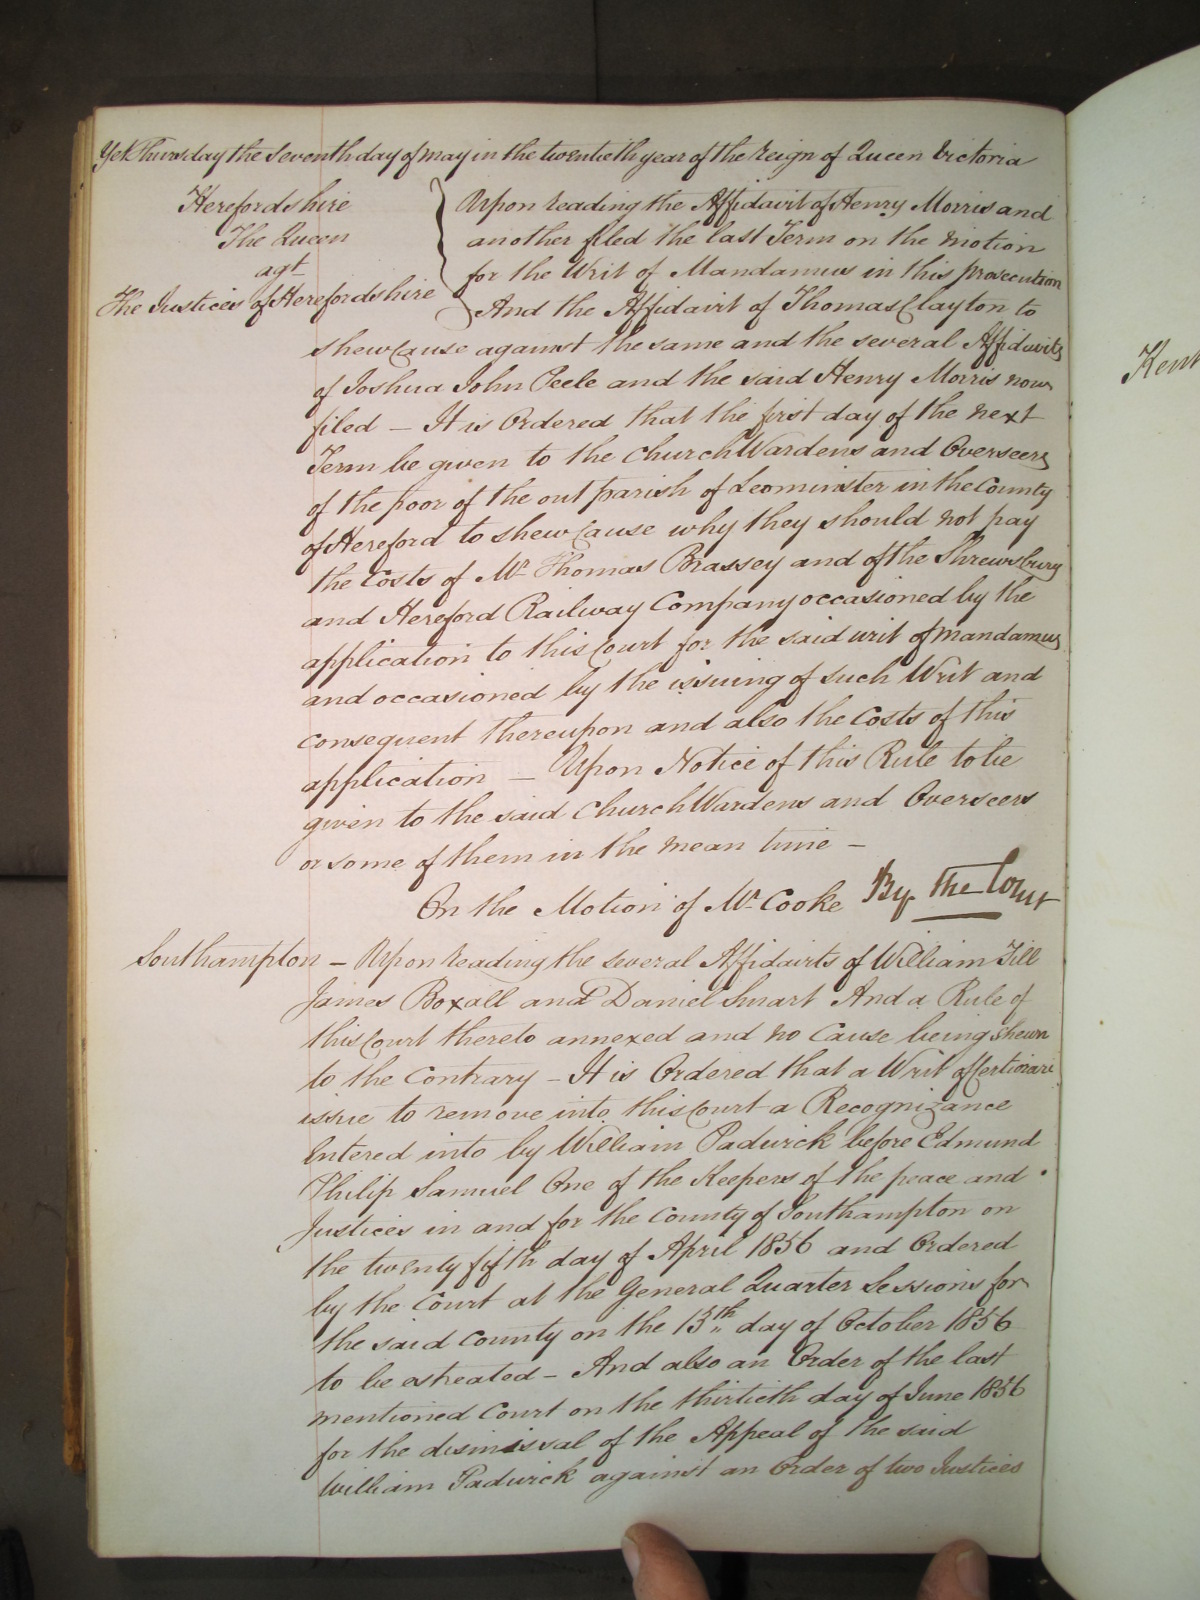 Yet Thursday the Seventh day of May in the twentieth year of the Reign of Queen Victoria
Herefordshire
The Queen
agt
The Justices of Herefordshire
Upon reading the Affidavit of Henry Morris and
another filed the last Term on the Motion
for the Writ of Mandamus in this prosecution
And the Affidavit of Thomas Clayton to
shew Cause against the same and the several Affidavits
of Joshua John Peele and the said Henry Morris now
filed – It is Ordered that the first day of the next
Term be given to the Church Wardens and Overseers
of the poor of the out parish of Leominster in the County
of Hereford to shew Cause why they should not pay
the Costs of Mr Thomas Brassey and of the Shrewsbury
and Hereford Railway Company occasioned by the
application to this Court for the said writ of Mandamus
and occasioned by the issuing of such Writ and
consequent thereupon and also the Costs of this
application – Upon Notice of this Rule to be
given to the said Church Wardens and Overseers
or some of them in the mean time –
On the Motion of Mr Cooke By the Court
Southampton – Upon reading the several Affidavits of William Till
James Boxall and Daniel Smart And a Rule of
this Court thereto annexed and no Cause being shewn
to the Contrary – It is Ordered that a Writ of Certiorari
issue to remove into this Court a Recognizance
Entered into by William Padwick before Edmund
Philip Samuel One of the Keepers of the peace and
Justices in and for the County of Southampton on
the twenty fifth day of April 1856 and Ordered
by the Court at the General Quarter Sessions for
the said County on the 13th day of October 1856
to be estreated – And also an Order of the last
mentioned Court on the thirtieth day of June 1856
for the dismissal of the Appeal of the said
William Padwick against an Order of two Justices
Kent